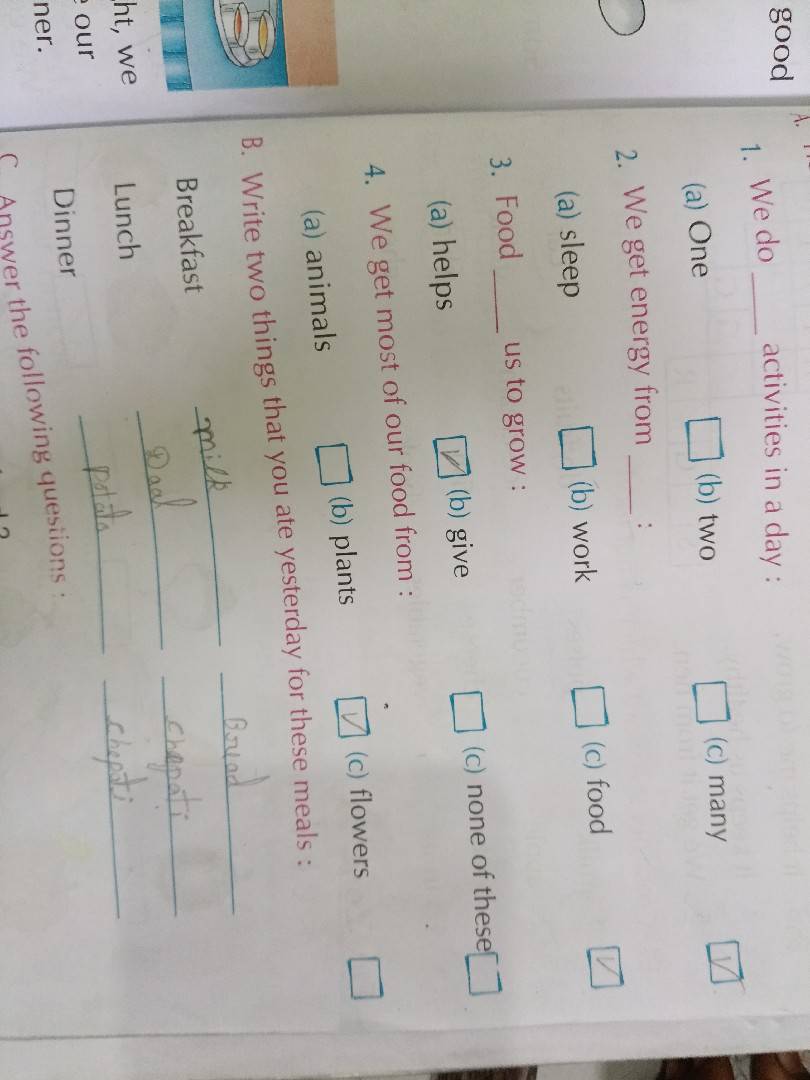 good
ht, we
our
ner.
A.
1. We do ______ activities in a day :
(a) One (b) two (c) many
2. We get energy from ______ :
(a) sleep (b) work (c) food
3. Food ______ us to grow :
(a) helps (b) give (c) none of these
4. We get most of our food from :
(a) animals (b) plants (c) flowers
B. Write two things that you ate yesterday for these meals :
Breakfast milk Bread
Lunch Daal Chapati
Dinner potato Chepati
C. Answer the following questions :